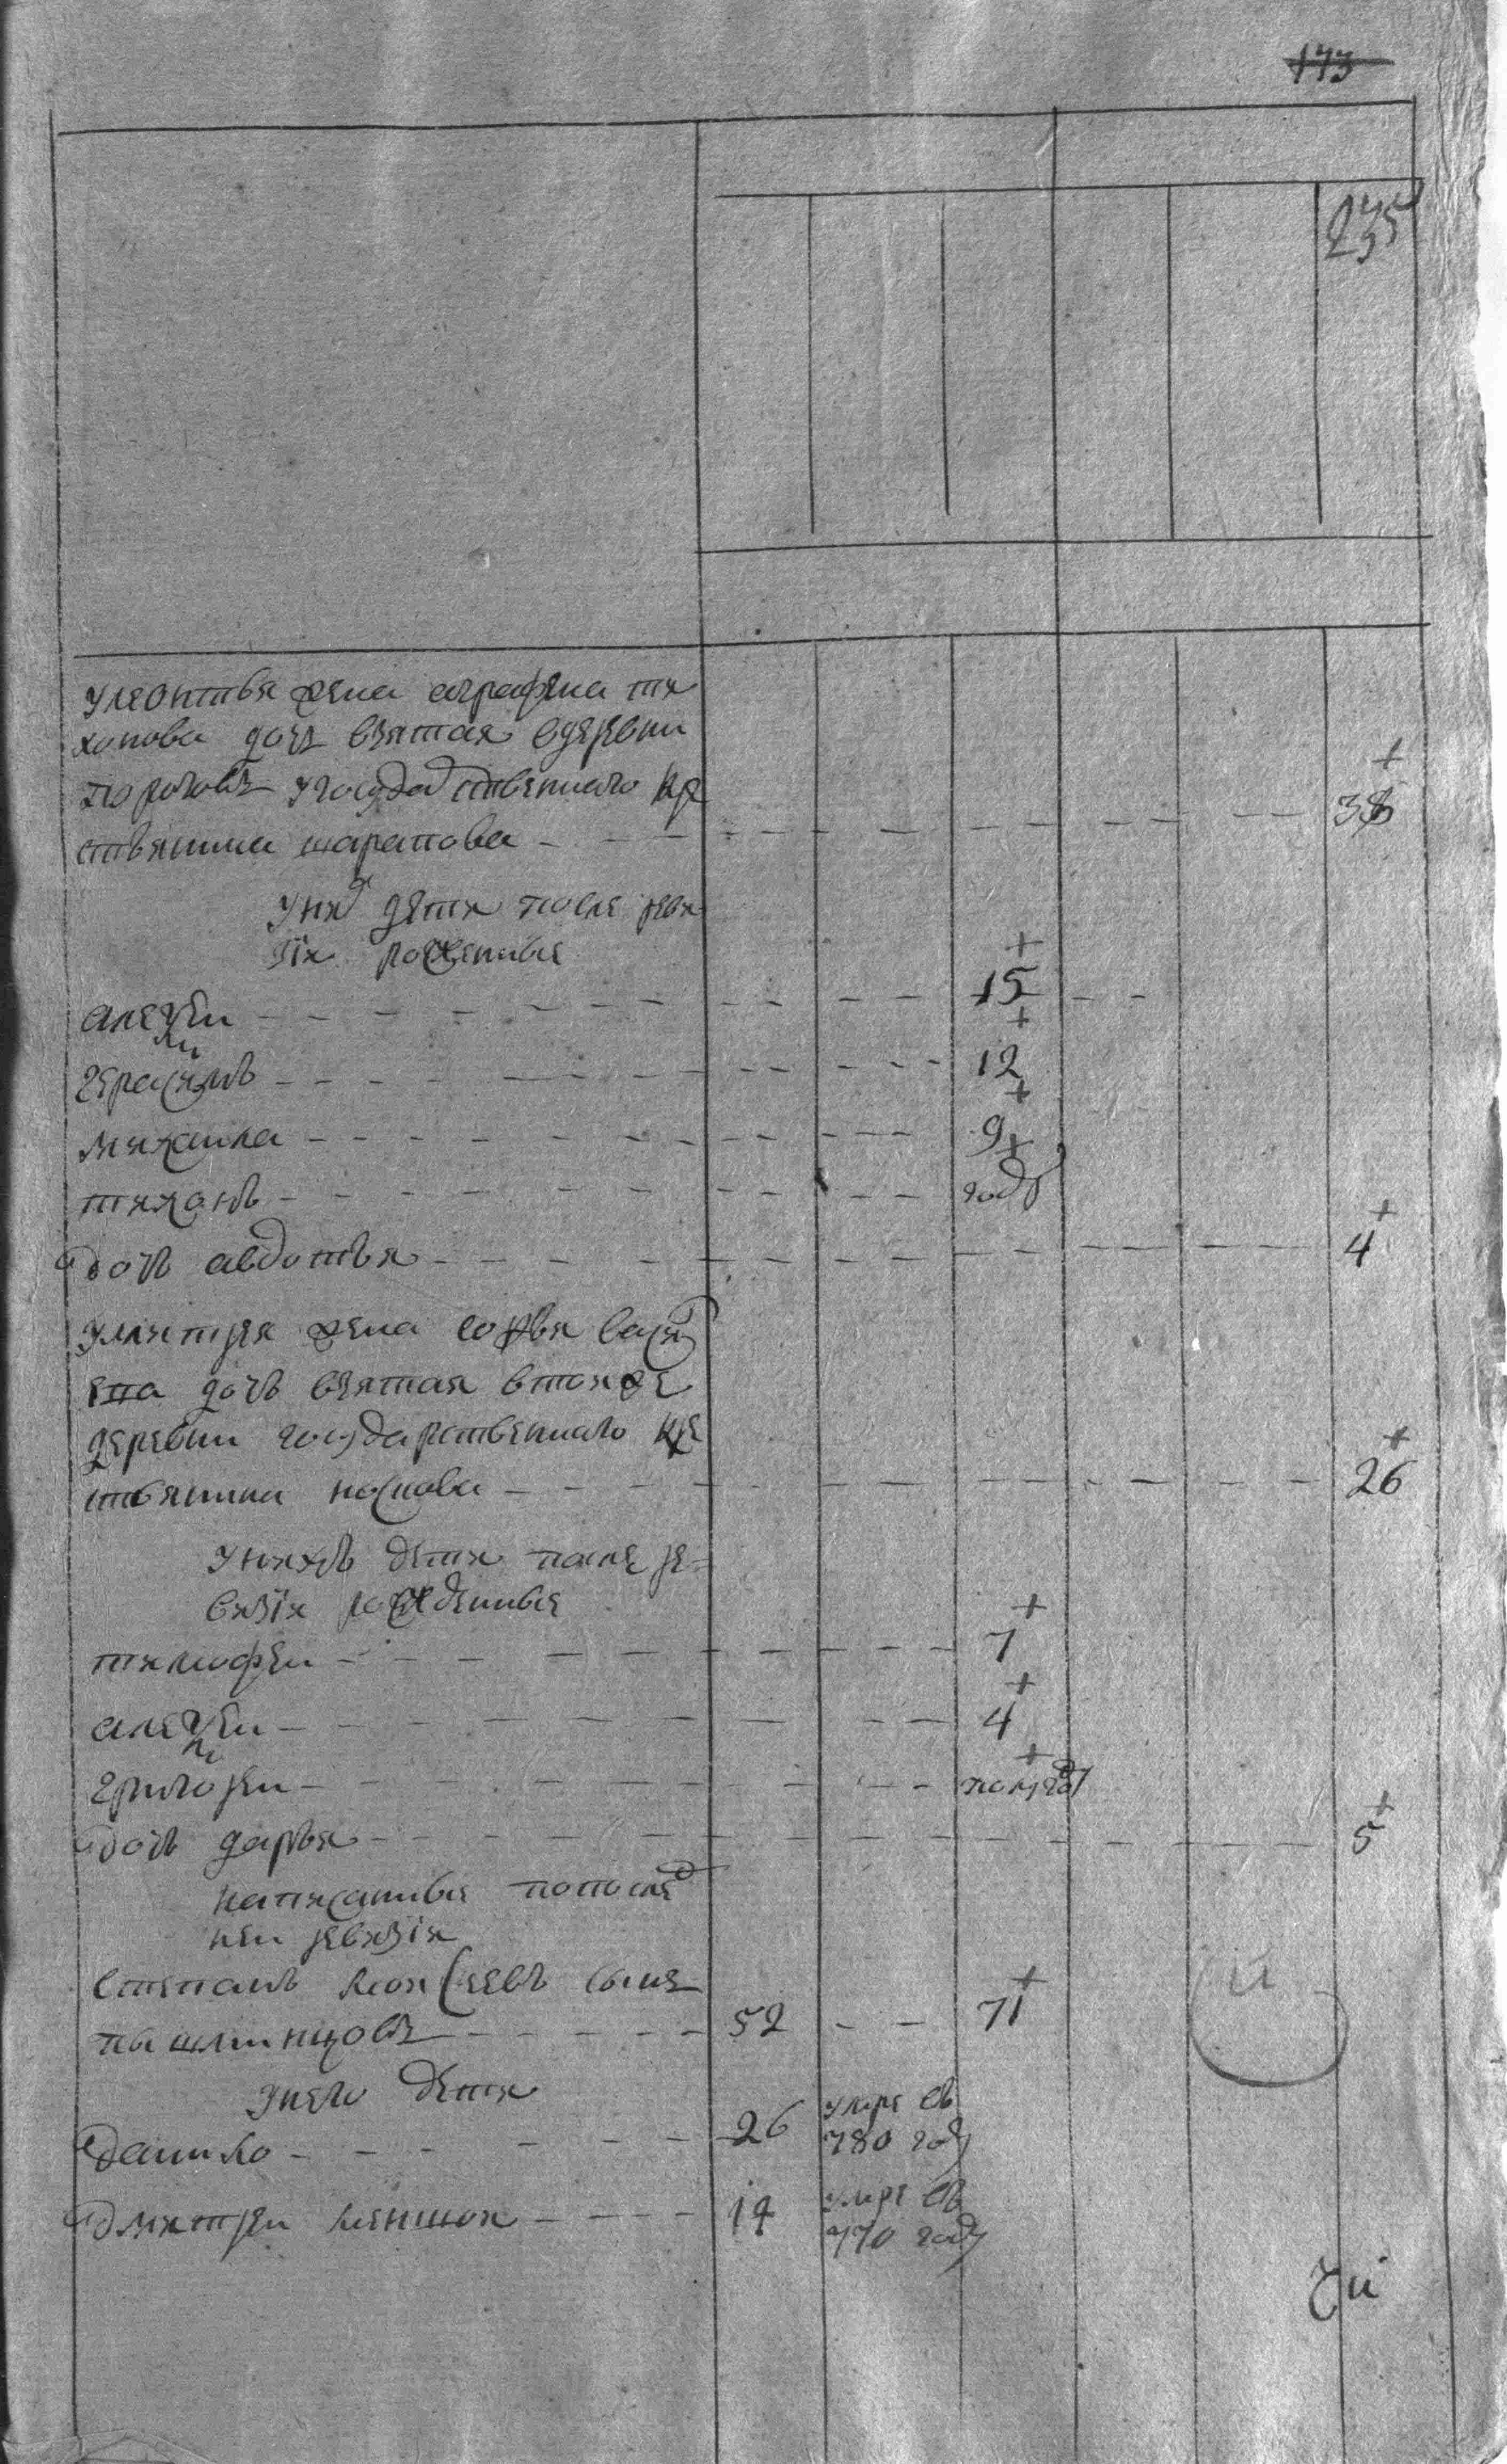 173
245
у леонтья жена аграфена ти
хонова дочь взятая вдеревни
пороговъ угосударственнаго кре
стьянина шарапова 38
у них дети после реви
зiи роженные
алексеи 15
герасимъ 12
михаила 9
тихонъ году
дочь авдотья 4
у митрея жена софья васи
ева дочь взятая втоиже
деревни государственнаго кре
стьянина носкова 26
у нихъ дети после ре-
визiи рожденные
тимофеи 7
алексеи 4
григореи полугоду
дочь дарья 5
написанные попослед
неи ревизiи
степанъ моисеевъ сынъ
пышминцовъ 52 71
у него дети
данило 26 умре въ
780 году
дмитреи меншои 14 умре въ
770 году